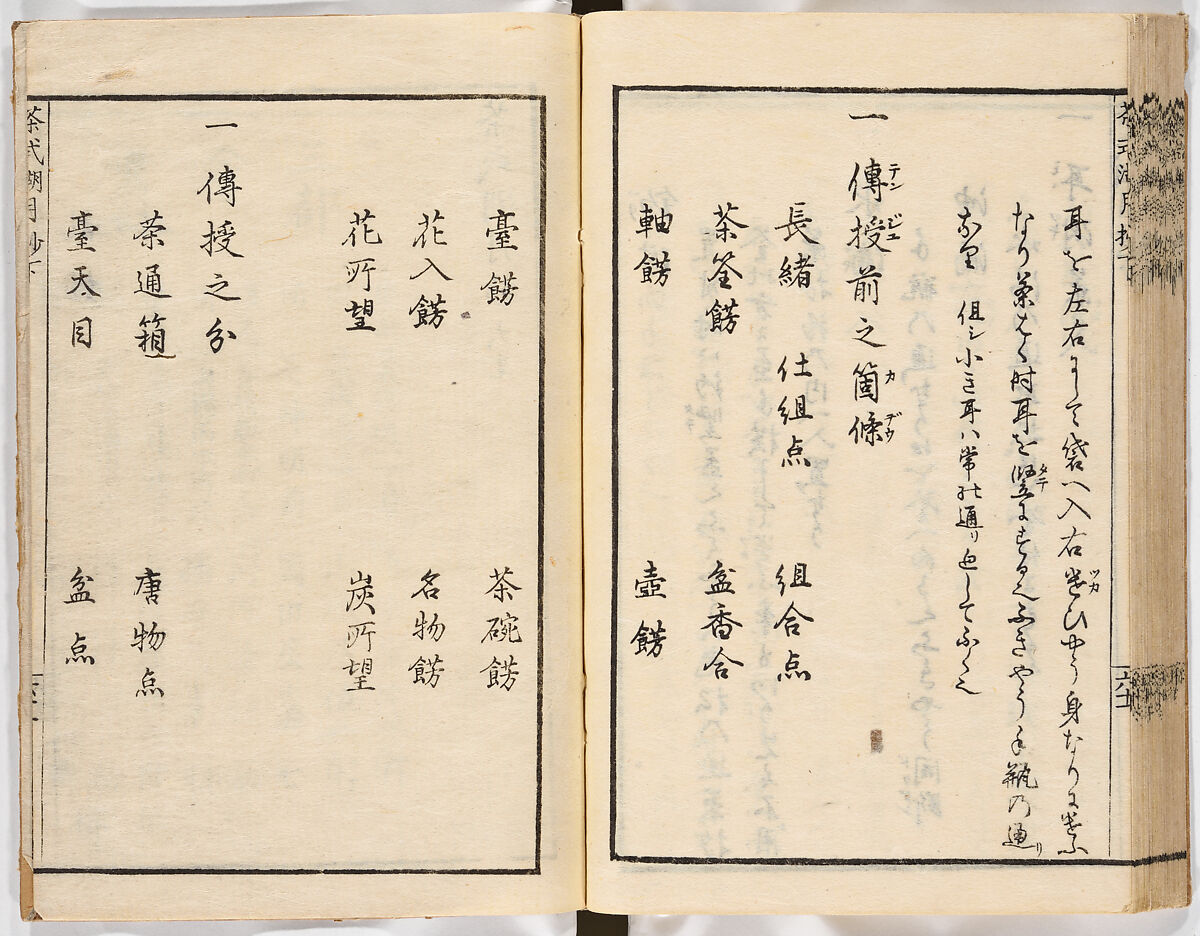 耳を左右にして袋へ入右遣ひやう身なりに遣ふ
ツカ
なり茶はく時耳を竪にする也ふきやう手瓶の通り
タテ
なり 但シ小き耳ハ常の通り也してふく也
一 傳授前之箇條
テン ジユ カ デウ
長緒 仕組点 組合点
茶筌餝 盆香合
軸餝 壺餝
臺餝 茶碗餝
花入餝 名物餝
花所望 炭所望
一 傳授之分
茶通箱 唐物点
臺天目 盆点
茶式湖月抄下